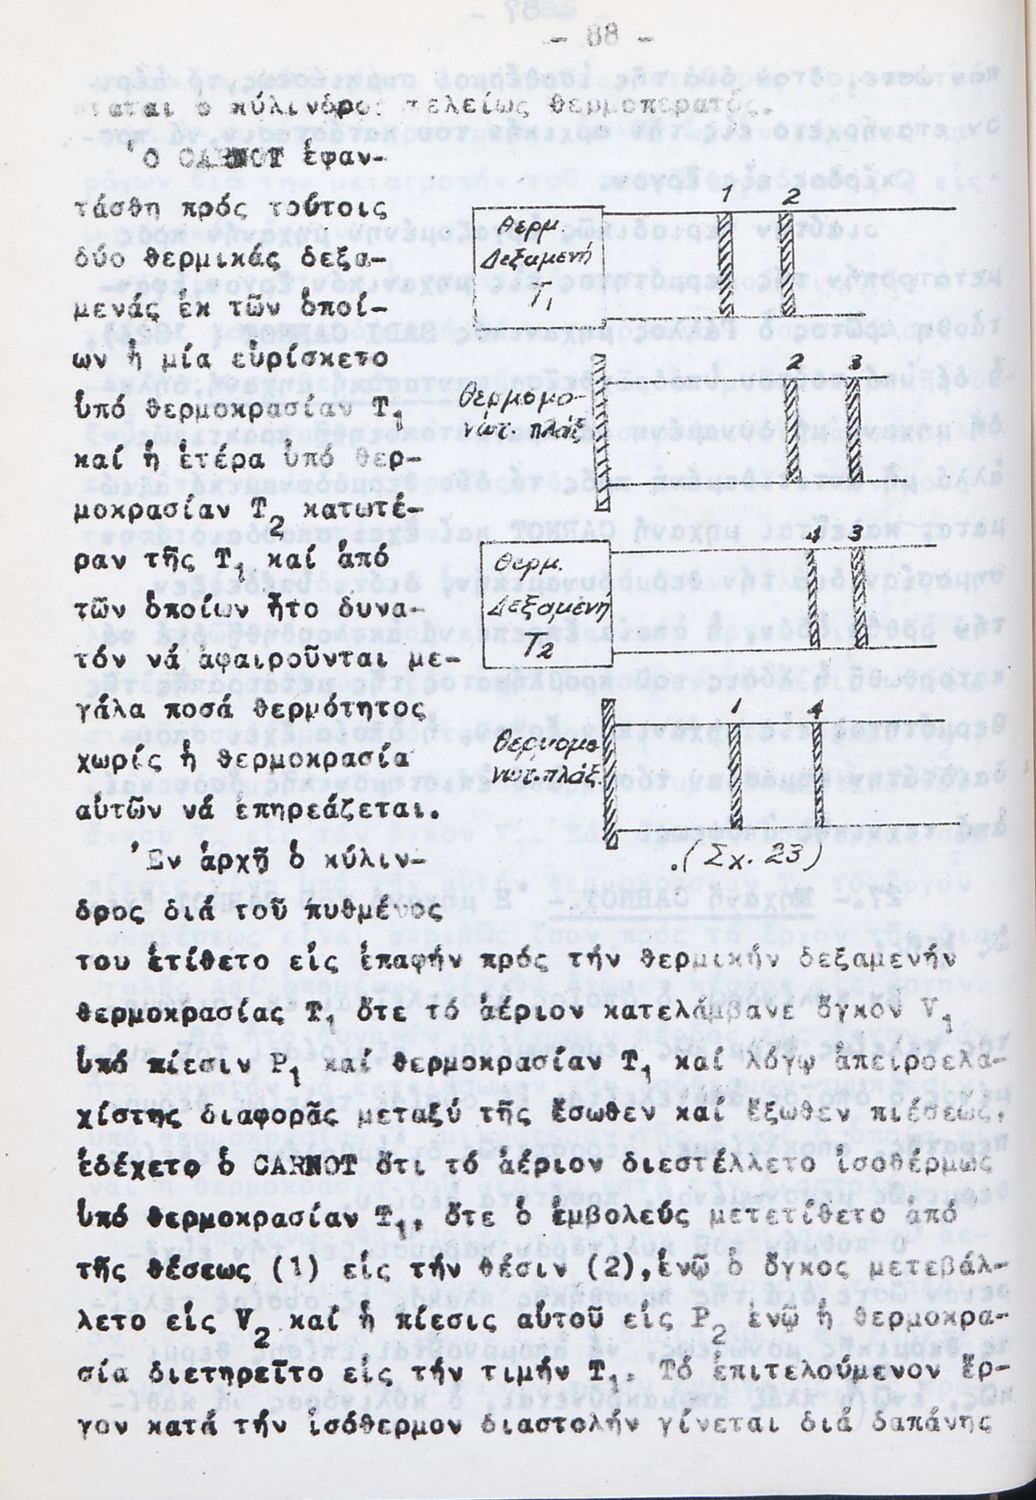 - 88 -
σταται ὁ κύλινδρος τελείως θερμοπερατός.
Ὁ CARNOT ἐφαν-
τάσθη πρός τούτοις
δύο θερμικάς δεξα-
μενάς ἐκ τῶν ὁποί-
ων ἡ μία εὑρίσκετο
ὑπό θερμοκρασίαν T1
καί ἡ ἑτέρα ὑπό θερ-
μοκρασίαν T2 κατωτέ-
ραν τῆς T1 καί ἀπό
τῶν ὁποίων ἦτο δυνα-
τόν νά ἀφαιροῦνται με-
γάλα ποσά θερμότητος
χωρίς ἡ θερμοκρασία
αὐτῶν νά ἐπηρεάζεται.
Ἐν ἀρχῇ ὁ κύλιν-
δρος διά τοῦ πυθμένος
1 2
Θερμ.
Δεξαμενή
T1
2 3
Θερμομο-
νωτ. πλάξ
4 3
Θερμ.
Δεξαμένη
T2
1 4
Θερμομο
νωτ. πλάξ.
.(Σχ. 23)
του ἐτίθετο εἰς ἐπαφήν πρός τήν θερμικήν δεξαμενήν
θερμοκρασίας T1 ὅτε τό ἀέριον κατελάμβανε ὄγκον V1
ὑπό πίεσιν P1 καί θερμοκρασίαν T1 καί λόγῳ ἀπειροελα-
χίστης διαφορᾶς μεταξύ τῆς ἔσωθεν καί ἔξωθεν πιέσεως,
ἐδέχετο ὁ CARNOT ὅτι τό ἀέριον διεστέλλετο ἰσοθέρμως
ὑπό θερμοκρασίαν T1, ὅτε ὁ ἐμβολεύς μετετίθετο ἀπό
τῆς θέσεως (1) εἰς τήν θέσιν (2),ἐνῷ ὁ ὄγκος μετεβάλ-
λετο εἰς V2 καί ἡ πίεσις αὐτοῦ εἰς P2 ἐνῷ ἡ θερμοκρα-
σία διετηρεῖτο εἰς τήν τιμήν T1. Τό ἐπιτελούμενον ἔρ-
γον κατά τήν ἰσόθερμον διαστολήν γίνεται διά δαπάνης